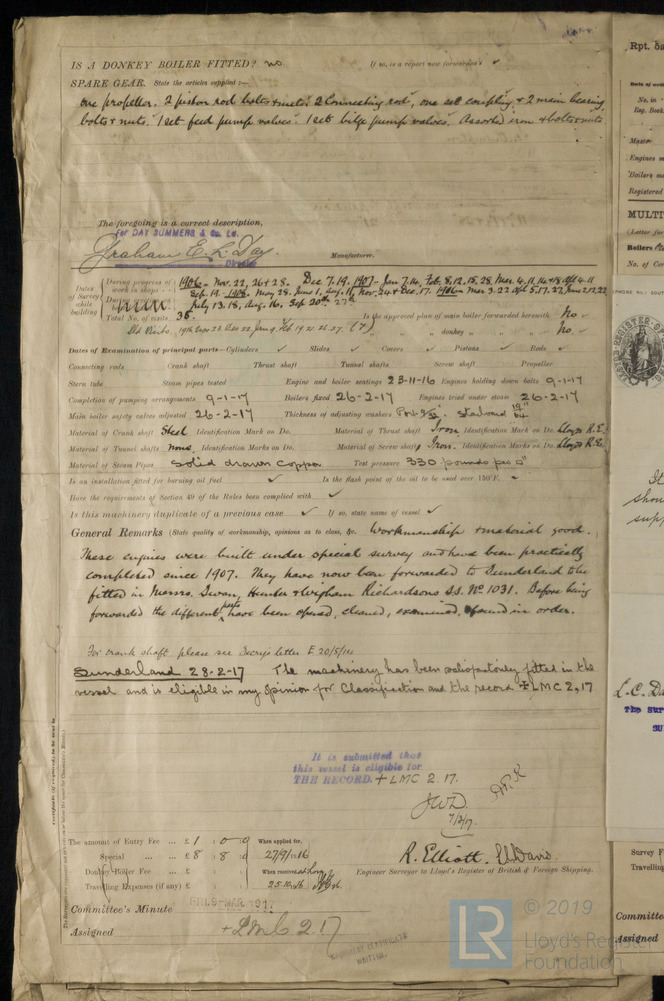 IS A DONKEY BOILER FITTED? no. If so, is a report now forwarded?
SPARE GEAR. State the articles supplied:—
One propeller. 2 piston rod bolts & nuts. 2 Connecting rod", one set coupling & 2 main bearing
bolts & nuts. 1 set feed pump valves. 1 set bilge pump valves. Assorted iron & bolts & nuts
The foregoing is a correct description,
For DAY SUMMERS & Co. Ld.
Graham E. L. Day. Manufacturer.
Director
Dates of Survey while building
During progress of work in shops 1906 — Nov. 22, 26 & 28. Dec 7. 19. 1907 — Jan 7. 14. Feb. 8, 12, 15, 28. Mar. 4. 11, 14 & 18. Apl 4. 11
Total No. of visits 38. Is the approved plan of main boiler forwarded herewith No
" " " donkey " " " No
Dates of Examination of principal parts—Cylinders Slides Covers Pistons Rods
Connecting rods Crank shaft Thrust shaft Tunnel shafts Screw shaft Propeller
Stern tube Steam pipes tested Engine and boiler seatings 23-11-16 Engines holding down bolts 9-1-17
Completion of pumping arrangements 9-1-17 Boilers fixed 26-2-17 Engines tried under steam 26-2-17
Main boiler safety valves adjusted 26-2-17 Thickness of adjusting washers
Material of Crank shaft Steel Identification Mark on Do. Material of Thrust shaft Iron. Identification Mark on Do. Lloyds R.E.
Material of Tunnel shafts none. Identification Marks on Do. Material of Screw shafts Iron. Identification Marks on Do. Lloyds R.E.
Material of Steam Pipes Solid drawn copper Test pressure 330 pounds per □"
Is an installation fitted for burning oil fuel Is the flash point of the oil to be used over 150°F.
Have the requirements of Section 49 of the Rules been complied with
Is this machinery duplicate of a previous case If so, state name of vessel
General Remarks (State quality of workmanship, opinions as to class, &c. Workmanship & material good.
These engines were built under special survey and have been practically
completed since 1907. They have now been forwarded to Sunderland to be
fitted in Messrs. Swan, Hunter & Wigham Richardsons S.S. No 1031. Before being
forwarded the different parts have been opened, cleaned, examined, & found in order.
For crank shaft please see Secry's letter E 20/5/14
Sunderland 28-2-17 The machinery has been satisfactorily fitted in the
vessel and is eligible in my opinion for Classification and the record + LMC 2,17
It is submitted that
this vessel is eligible for
THE RECORD. + LMC 2.17.
JWD.
7/3/17.
The amount of Entry Fee ... £ 1 : 0 : 0 When applied for,
Special ... £ 8 : 8 : 0 27/9/1916
Donkey Boiler Fee ... £ : : When received,
Travelling Expenses (if any) £ : : 25.10.16
R. Elliott.
Engineer Surveyor to Lloyd's Register of British & Foreign Shipping.
Committee's Minute FRI. 9-MAR. 1917
Assigned + LMC 2.17
MACHINERY CERTIFICATE
WRITTEN.
© 2019
LR Lloyd's Register
Foundation
Rpt. 5a
No. in
Reg. Book
Master
Engines
Boilers
Registered
MULTI
(Letter for
Boilers
No. of
It
supp
L.C. Da
The Sur
SU
Survey F
Travelling
Committee
Assigned